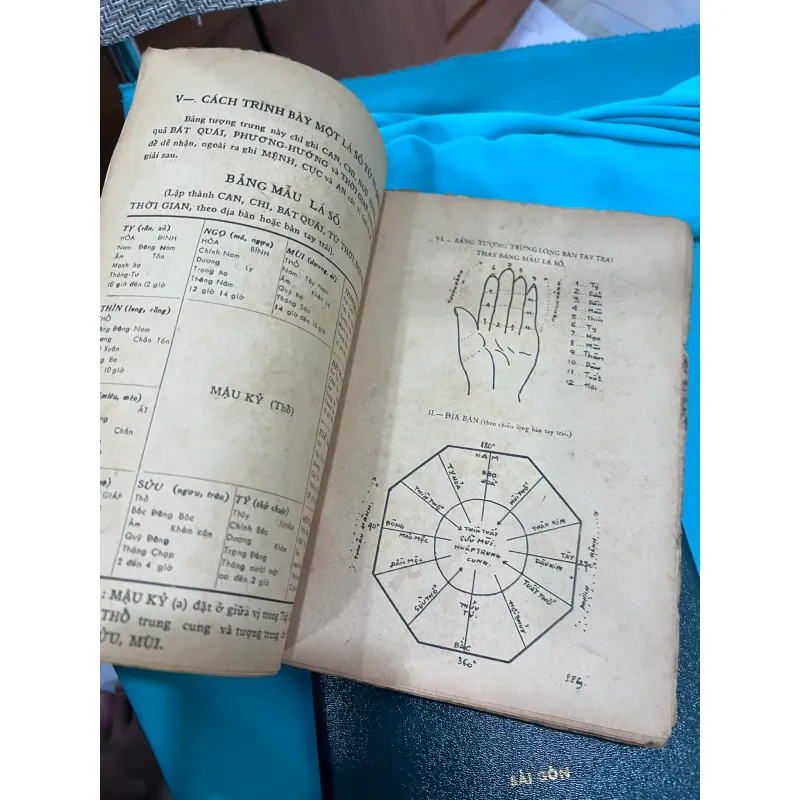 V—. CÁCH TRÌNH BÀY MỘT LÁ SỐ TỬ
Bảng tượng trưng này chỉ ghi CAN, CHI, NGŨ
quả BÁT QUÁI, PHƯƠNG-HƯỚNG và THỜI GIAN
để dễ nhận, ngoài ra ghi MỆNH, CỤC và AN các
giải sau.
BẢNG MẪU LÁ SỐ.
(Lập thành CAN, CHI, BÁT QUÁI, TỨ THỜI,
THỜI GIAN, theo địa bàn hoặc bàn tay trái).
TỴ (rắn, sỏ)
HỎA ĐINH
Nam Đông Nam
Âm Tốn
Mạnh hạ
Tháng Tư
10 giờ đến 12 giờ
NGỌ (mã, ngựa)
HỎA BÍNH
Chính Nam
Dương Ly
Trọng hạ
Tháng Năm
12 giờ 14 giờ
MÙI (dương, dê)
THỔ
Nam Tây Nam
Âm
Quý hạ
Tháng Sáu
14 giờ đến 16 giờ
THÌN (long, rồng)
THỔ
Đông Đông Nam
Chấn Tốn
Xuân
Ba
10 giờ
MẬU KỶ (Thổ)
(miêu, mèo)
ẤT
Chấn
GIÁP
SỬU (ngưu, trâu)
Thổ
Bắc Đông Bắc
Âm Khảm cấn
Quý Đông
Tháng Chạp
2 đến 4 giờ
TÝ (thử chuột)
Thủy NHÂM
Chính Bắc
Dương Khảm
Trọng Đông
Tháng mười một
00 đến 2 giờ
: MẬU KỶ (a) đặt ở giữa vị trong
THỔ trung cung và tượng trưng
SỬU, MÙI.
VI.— BẢNG TƯỢNG TRƯNG LÒNG BÀN TAY TRÁI
THAY BẢNG MẪU LÁ SỐ.
THUẬN HÀNH
NGHỊCH HÀNH
1 Tý
2 Sửu
3 Dần
4 Mão
5 Thìn
6 Tỵ
7 Ngọ
8 Mùi
9 Thân
10 Dậu
11 Tuất
12 Hợi
II.— ĐỊA BÀN (theo chiều lòng bàn tay trái.)
180°
NAM
TỴ HỎA
NGỌ HỎA
MÙI THỔ
THÌN THỔ
THÂN KIM
90°
ĐÔNG
MÃO MỘC
THÌN TUẤT
SỬU MÙI.
NHẬP TRUNG
CUNG.
TÂY
DẬU KIM
DẦN MỘC
TUẤT THỔ
SỬU THỔ
HỢI THỦY
BẮC
360°
THUẬN HÀNH
NGHỊCH HÀNH
SÀI GÒN